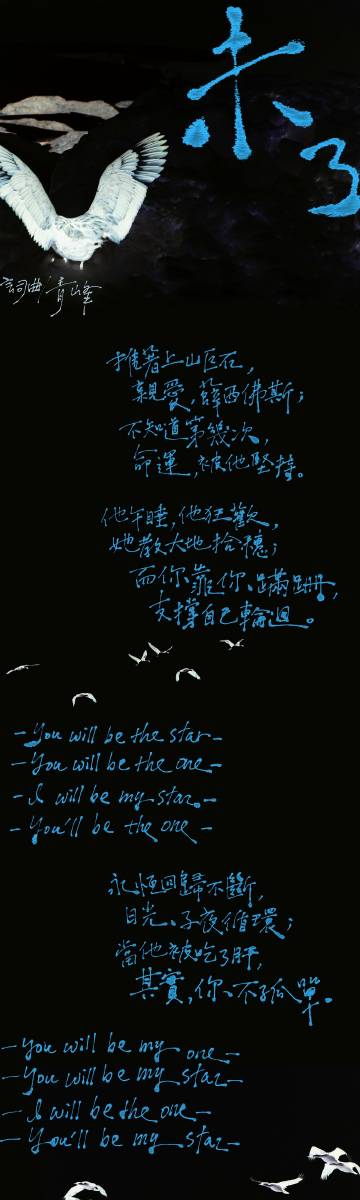 未了
詞曲 青峰
推著上山巨石，
親愛，薛西佛斯；
不知道第幾次，
命運，被他堅持。
他午睡，他狂歡，
她教大地拾穗；
而你靠你、蹣跚，
支撐自己輪迴。
-You will be the star-
-You will be the one-
-I will be my star-
-You'll be the one-
永恆回歸不斷，
日光、子夜循環；
當他被吃了肝，
其實，你、不孤單。
-You will be my one-
-You will be my star-
-I will be the one-
-You'll be my star-